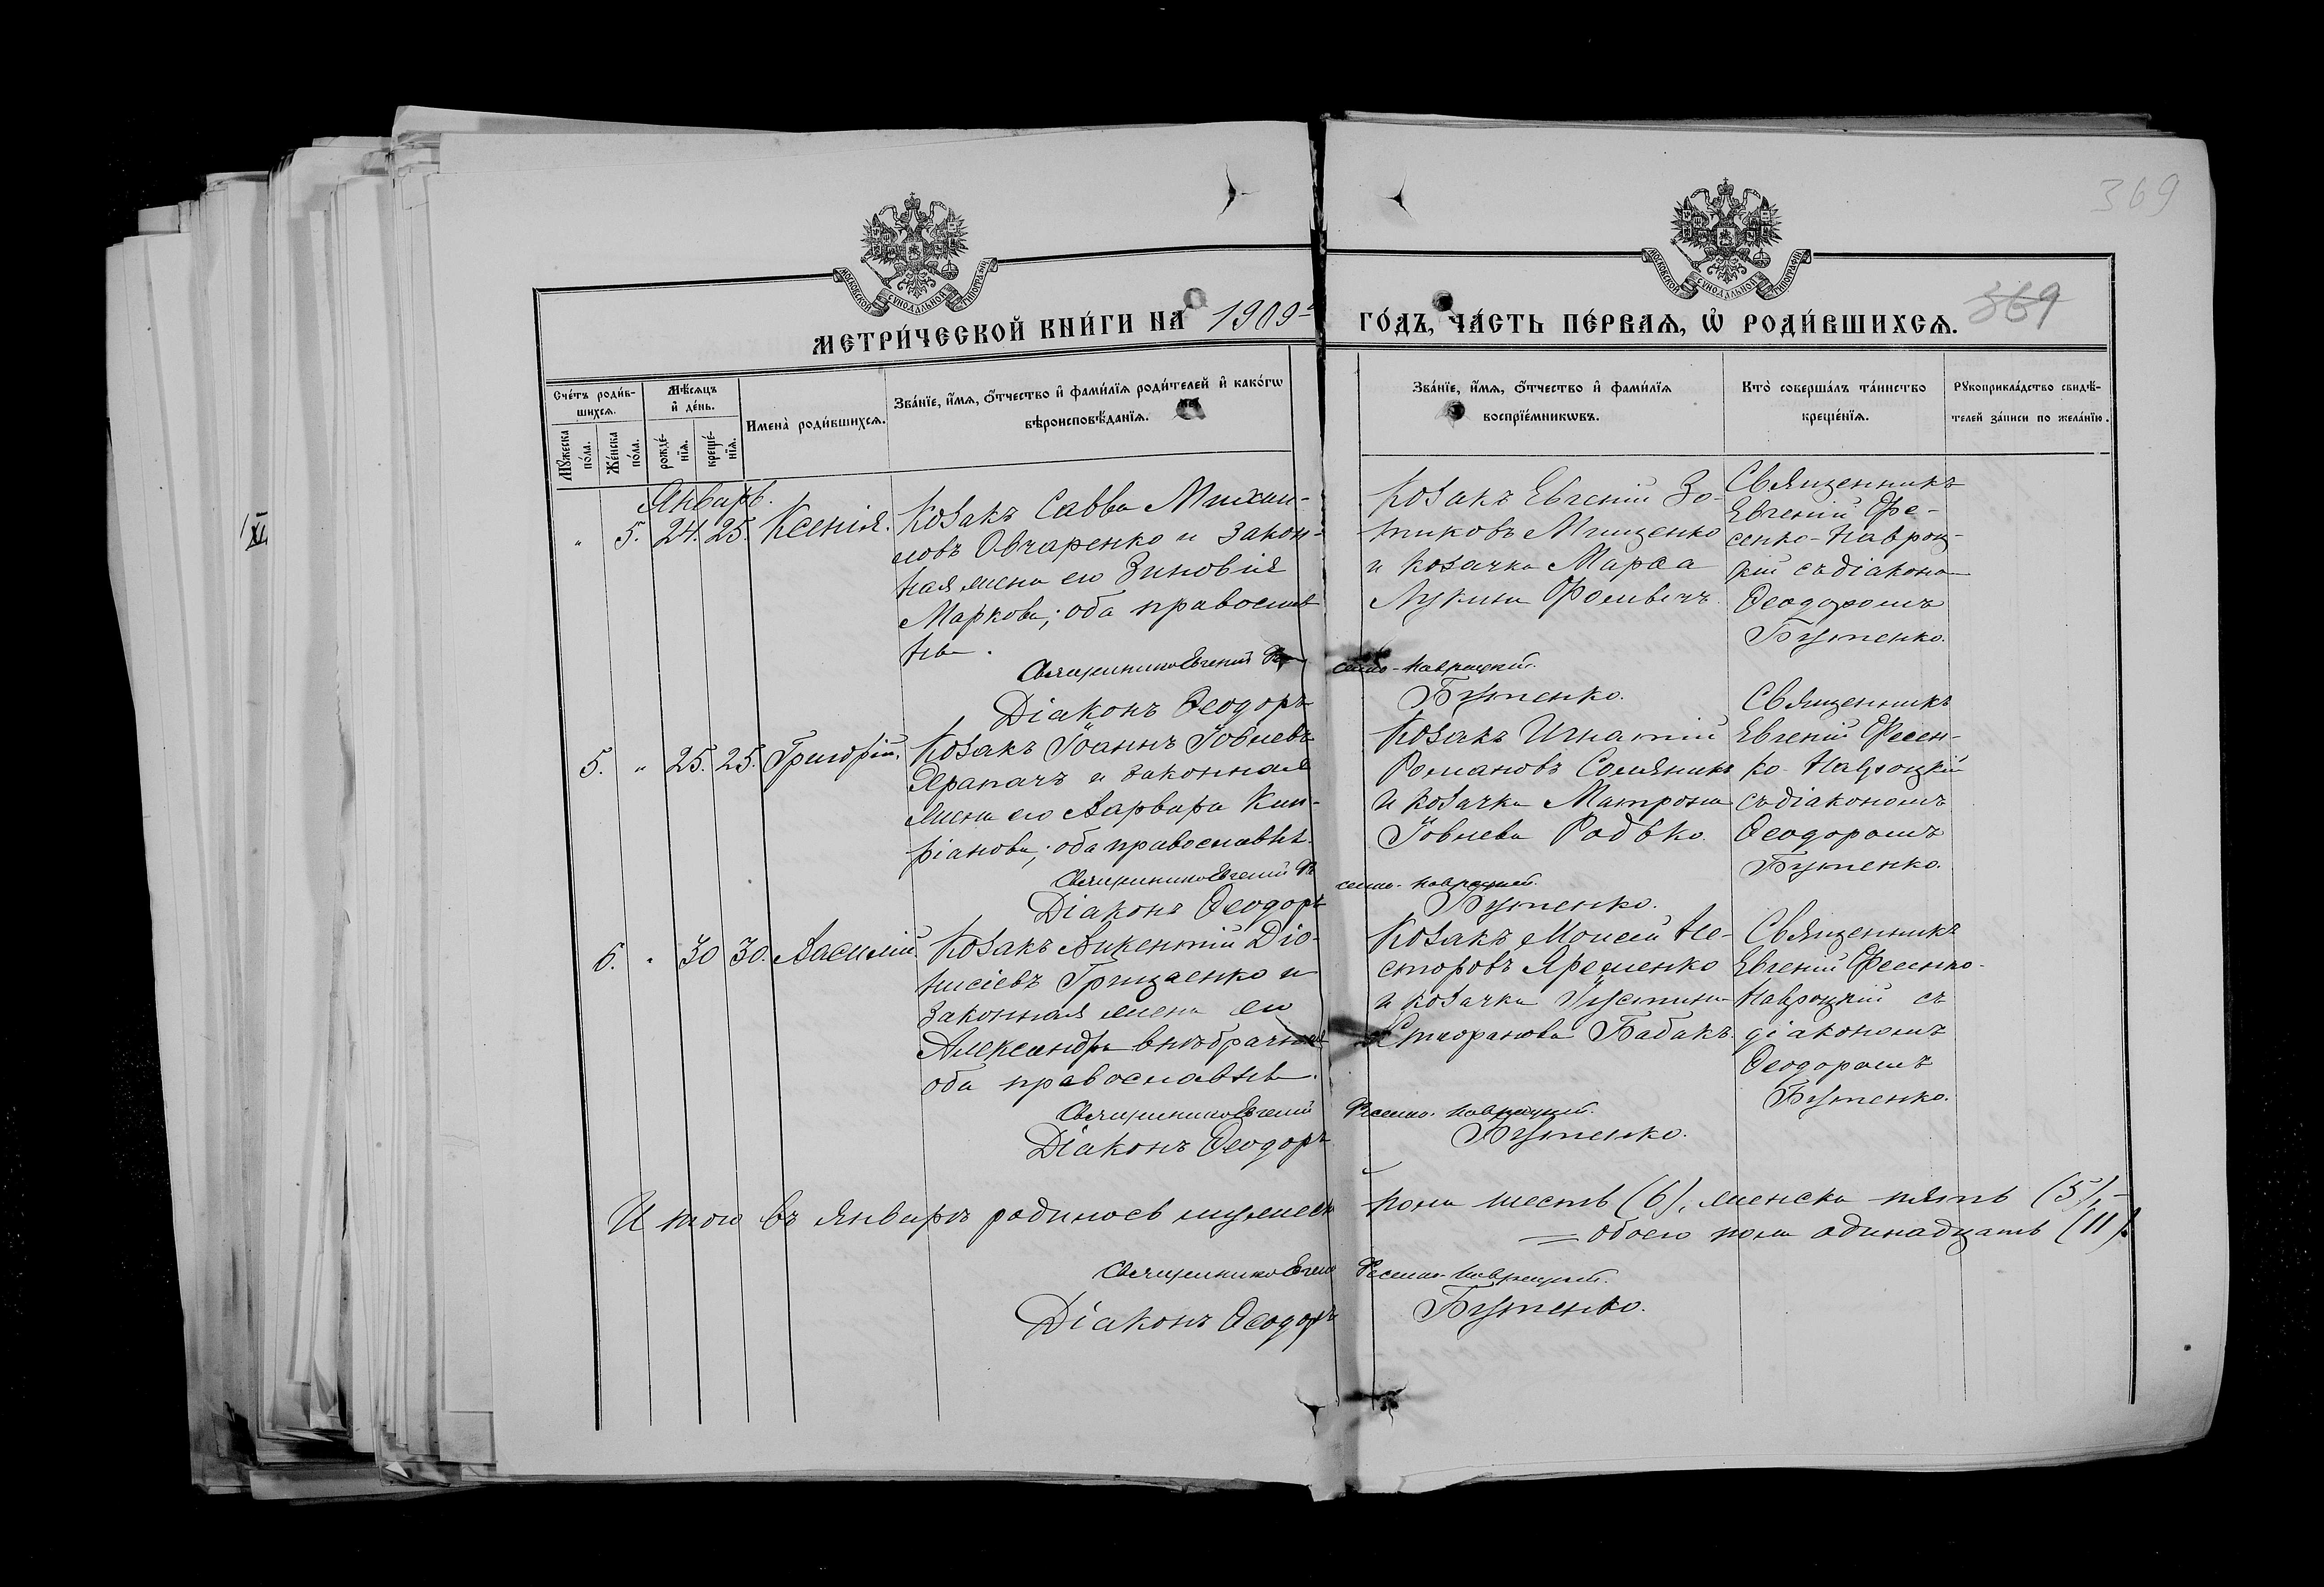 369
МОСКОВСКОЙ СѴНОДАЛЬНОЙ ТИПОГРАФІИ
МОСКОВСКОЙ СѴНОДАЛЬНОЙ ТИПОГРАФІИ
МЕТРИ́ЧЕСКОЙ КНИ́ГИ НА 1909 ГО́ДЪ, ЧА́СТЬ ПЕ́РВАѦ, Ѽ РОДИ́ВШИХСѦ. 369
Сче́тъ роди́в-
шихсѧ.
Мѣ́сѧцъ
и҆ де́нь.
Мꙋ́жеска
по́ла.
Же́нска
по́ла.
рожде́-
нїѧ.
креще́-
нїѧ.
Имена̀ роди́вшихсѧ.
Зва́нїе, и҆́мѧ, ѻ҆́тчество и҆ фами́лїѧ роди́телей и҆ како́гѡ
вѣроисповѣ́данїѧ.
Зва́нїе, и҆́мѧ, ѻ҆́тчество и҆ фами́лїѧ
воспрїе́мникѡвъ.
Кто̀ соверша́лъ та́инство
креще́нїѧ.
Рꙋкоприкла́дство свидѣ́-
телей за́писи по жела́нїю.
Январь.
" 5. 24. 25. Ксенія.
Козакъ Савва Михаи-
ловъ Овчаренко и закон-
ная жена его Зиновія
Маркова; оба православ
ны.
Козакъ Евгеній Зо-
тиковъ Мищенко
и козачка Марѳа
Лукина
Священникъ
Евгеній Фе-
сенко-Навроц-
кій съ діаконо
Ѳеодоромъ
Бутенко.
Священникъ Евгеній Фесенко-Навроцкій.
Діаконъ Ѳеодоръ Бутенко.
5. " 25. 25. Григорій.
Козакъ Іоаннъ Іовлевъ
Драпачъ и законная
жена его Варвара Кип-
ріанова; оба православны.
Козакъ Игнатій
Романовъ Соляникъ
и козачка Матрона
Іовлева Радько.
Священникъ
Евгеній Фесен-
ко-Навроцкій
съ діакономъ
Ѳеодоромъ
Бутенко.
Священникъ Евгеній Фесенко-Навроцкій.
Діаконъ Ѳеодоръ Бутенко.
6. " 30 30. Василій.
Козакъ Викентій Діо-
нисіевъ Грицаенко и
законная жена его
Александра внѣбрачная
оба православны.
Козакъ Моисей Не-
сторовъ Яременко
и козачка Іустина
Бабакъ.
Священникъ
Евгеній Фесенко-
Навроцкій съ
діакономъ
Ѳеодоромъ
Бутенко.
Священникъ Евгеній Фесенко-Навроцкій.
Діаконъ Ѳеодоръ Бутенко.
Итого въ январѣ родилось мужеск пола шесть (6), женска пять (5),-
= обоего пола одинадцать (11).
Священникъ Евгеній Фесенко-Навроцкій.
Діаконъ Ѳеодоръ Бутенко.
XI